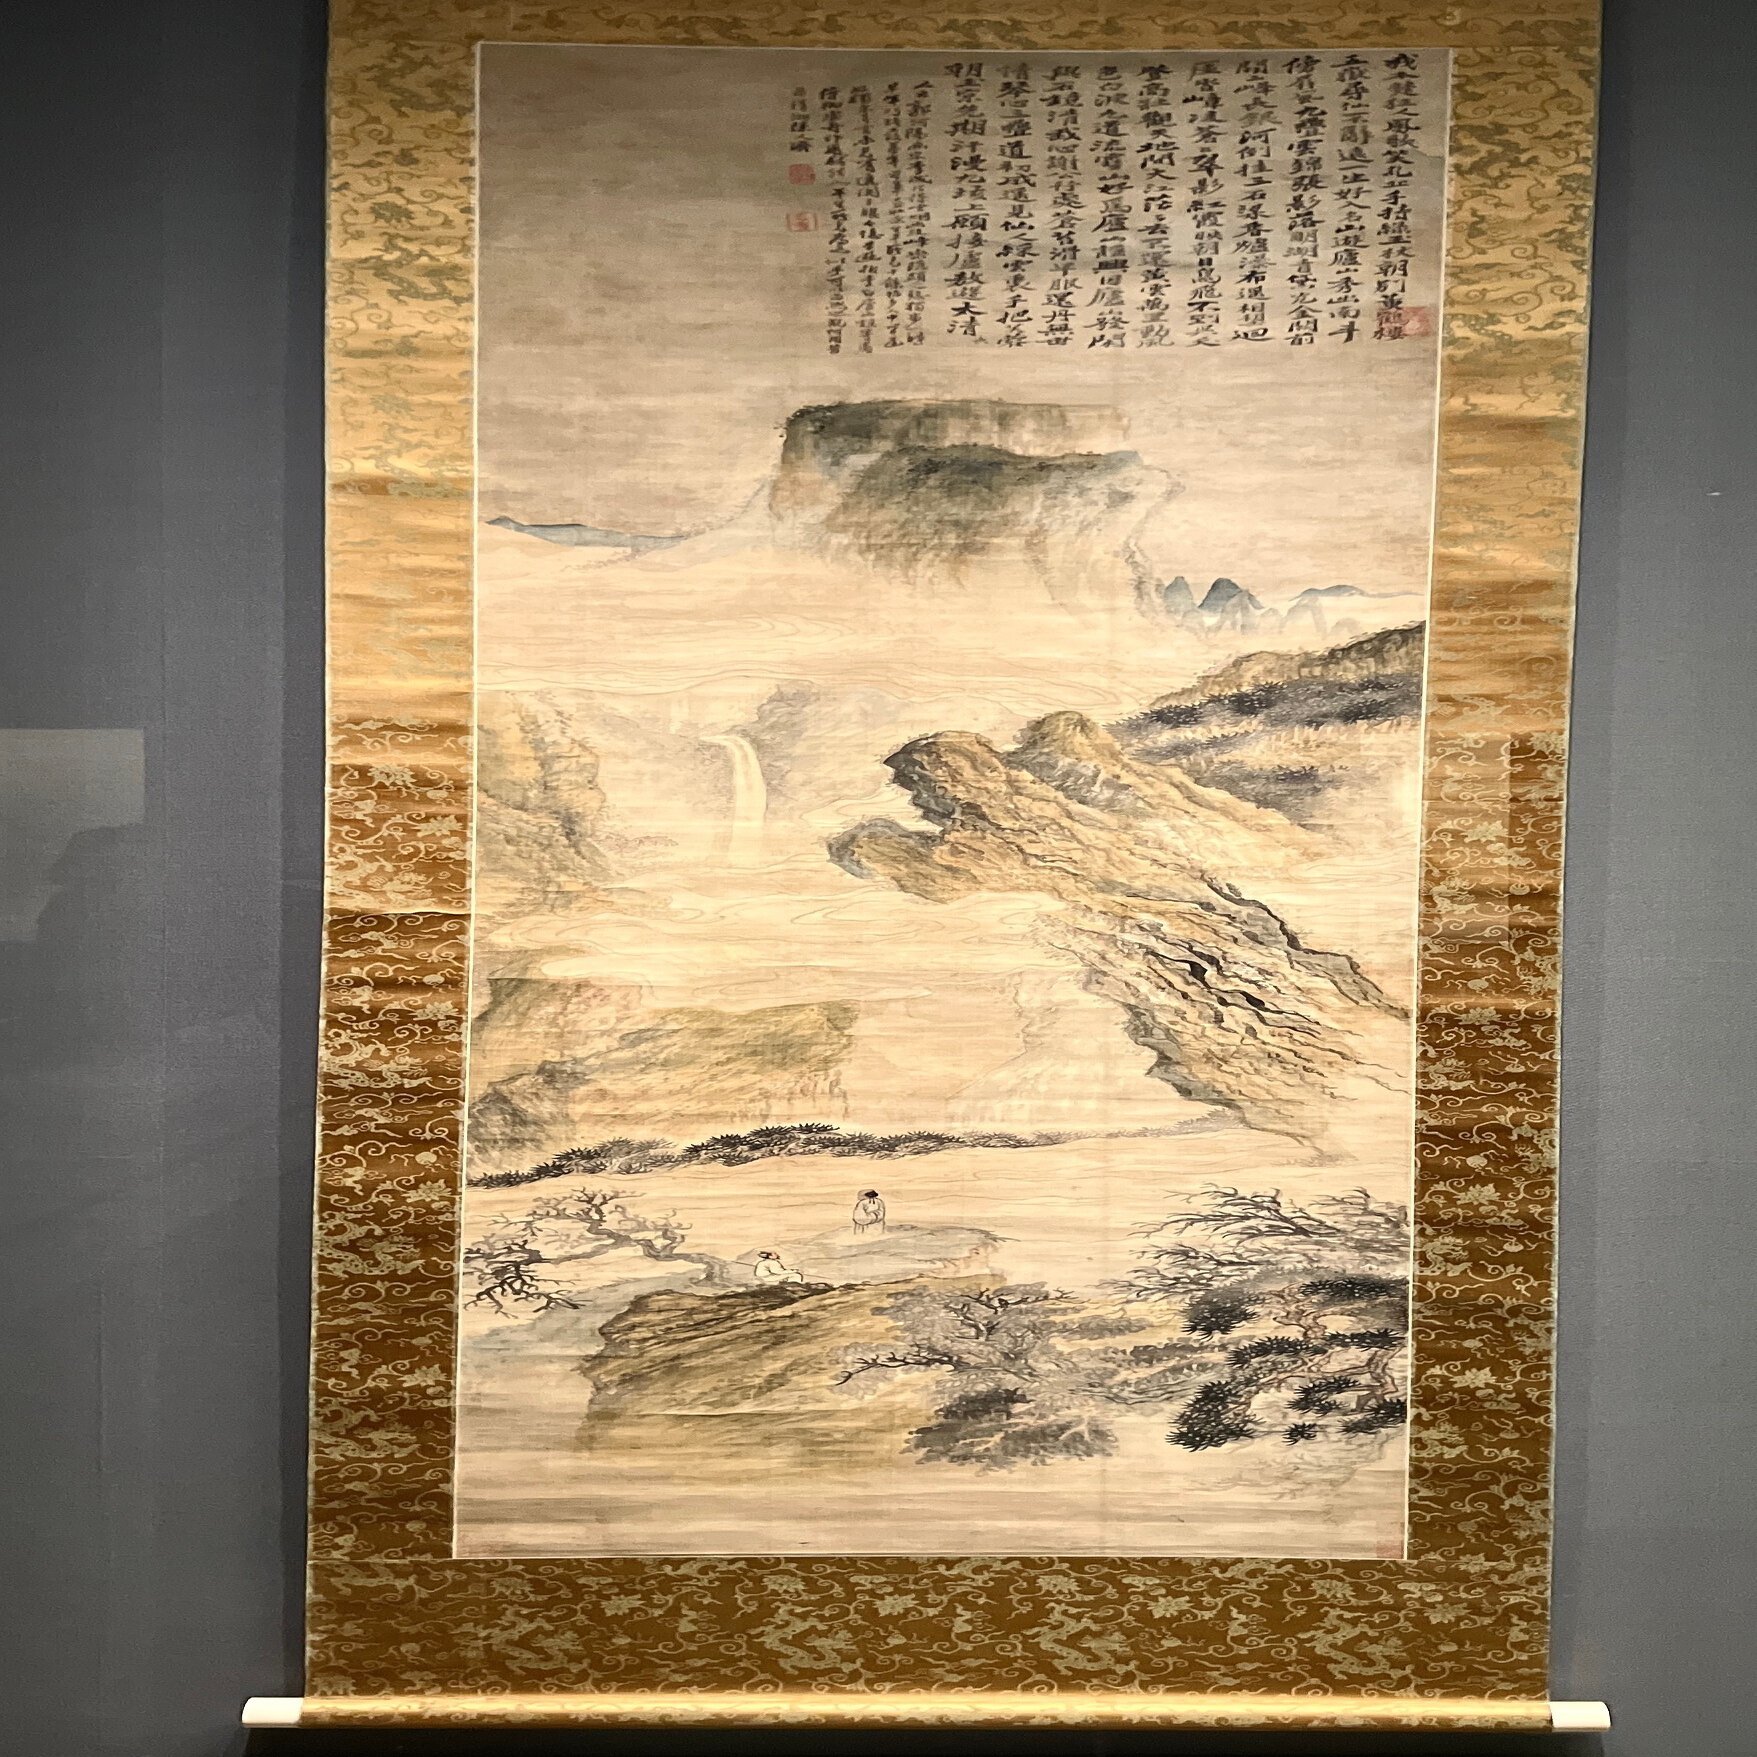 我本楚狂人鳳歌笑孔丘手持綠玉杖朝別黃鶴樓
五嶽尋仙不辭遠一生好入名山遊廬山秀出南斗
傍屏風九疊雲錦張影落明湖青黛光金闕前
開二峰長銀河倒挂三石梁香爐瀑布遙相望迴
崖沓嶂凌蒼蒼翠影紅霞映朝日鳥飛不到吳天
登高壯觀天地間大江茫茫去不還黃雲萬里動風
色白波九道流雪山好為廬山謠興因廬山發閒
窺石鏡清我心謝公行處蒼苔滑早服還丹無世
情琴心三疊道初成遙見仙人綵雲裏手把芙蓉
朝玉京先期汗漫九垓上願接盧敖遊太清
人云郭河陽畫宗李成法得雲烟出沒峰巒隱顯之態獨步一時
清湘陳人濟